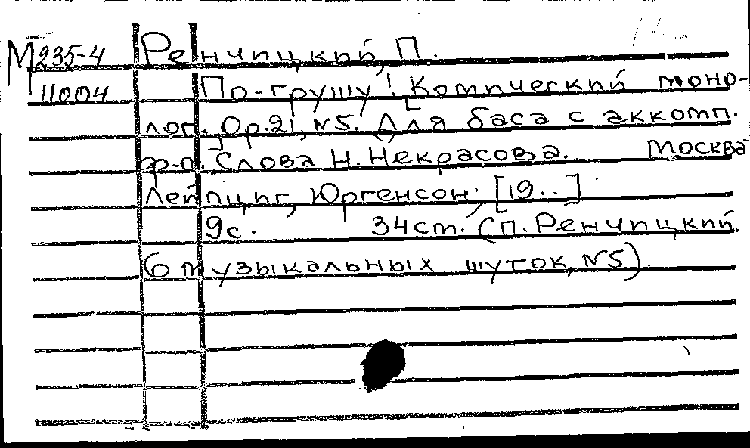 М 235-4 Ренчицкий, П.
11004 По-грушу! Комический моно-
лог. Op. 21, №5. Для баса с аккомп.
ф-п. Слова Н. Некрасова. Москва
Лейпциг, Юргенсон, [19..]
9с. 34 ст. (П. Ренчицкий.
6 музыкальных шуток, №5)